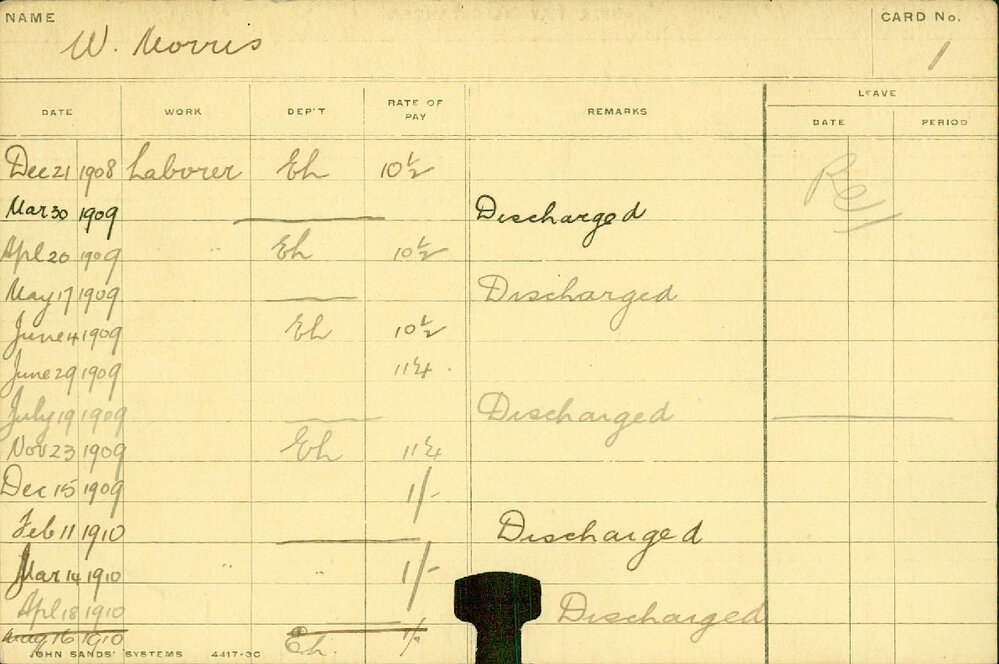 NAME W. Morris CARD No. 1
LEAVE
DATE WORK DEP'T RATE OF PAY REMARKS DATE PERIOD
Dec 21 1908 Laborer Eh 10½
Mar 30 1909 Discharged
Apl 20 1909 " Eh 10½
May 17 1909 Discharged
June 4 1909 Eh 10½
June 29 1909 11¼
July 19 1909 Discharged
Nov 23 1909 Eh 11¼
Dec 15 1909 1/-
Feb 11 1910 Discharged
Mar 14 1910 " " 1/-
Apl 18 1910 Discharged
May 16 1910 Eh. 1/-
JOHN SANDS' SYSTEMS 4417-3C